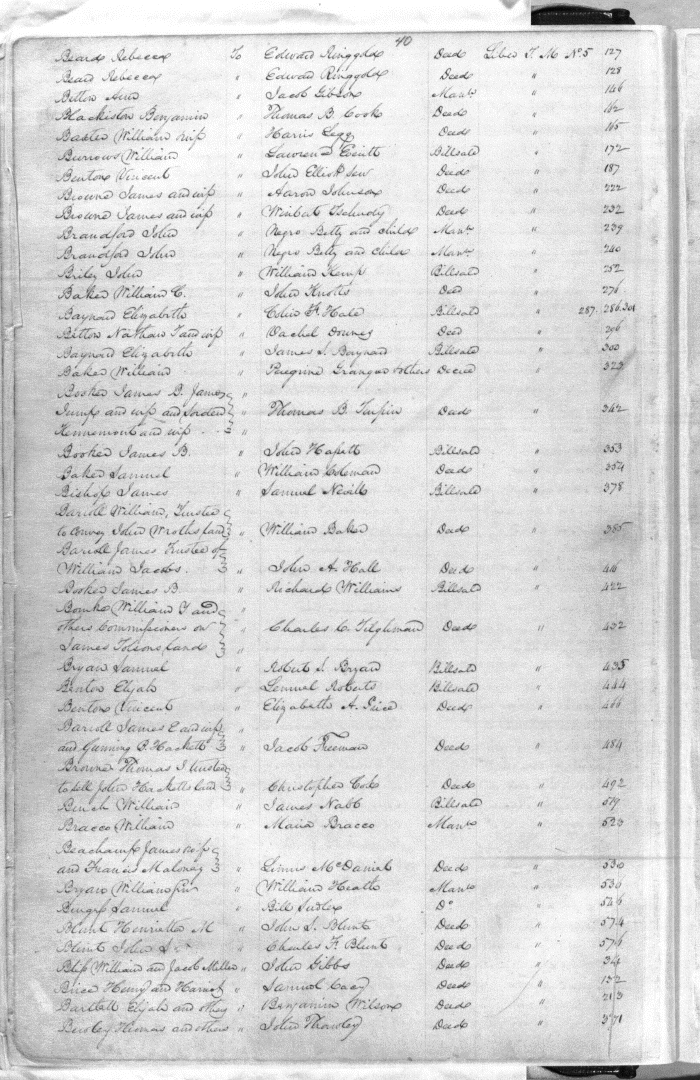 40
Beard Rebecca To Edward Ringgold Deed Liber T. M. No 5 127
Beard Rebecca " Edward Ringgold Deed " 128
Bitton Ann " Jacob Gibson Manu. " 146
Blackiston Benjamin " Thomas B. Cook Deed " 142
Baxter William wife " Harris Legg Deed " 145
Burrows William " Lawrence Billsale " 172
Benton Vincent " John Elliott Senr Deed " 187
Browne James and wife " Aaron Johnson Deed " 222
Browne James and wife " Winbert Tschudy Deed " 232
Brandford John " Negro Betty and child Manu. " 239
Brandford John " Negro Betty and child Manu. " 240
Briley John " William Kemp Billsale " 252
Baker William C. " John Knotts Deed " 276
Baynard Elizabeth " F. Hale Billsale " 287. 286.301
Bitton Nathan T and wife " Rachel Downes Deed " 296
Baynard Elizabeth " James S. Baynard Billsale " 300
Baker William " Peregrine Granger & others Decree " 323
Booker James B. James "
Jump and wife and Jorden " Thomas B. Turpin Deed " 342
Kennemont and wife "
Booker James B. " John Hassett Billsale " 353
Baker Samuel " William Coleman Deed " 354
Bishop James " Samuel Nevill Billsale " 378
Barroll William, Trustee
to convey John Wroths land " William Baker Deed " 385
Barroll James Trustee of
William Jacobs. " John A. Hall Deed " 416
Booker James B " Richard Williams Billsale " 422
William T and "
others Commissioners on " Charles C. Tilghman Deed " 432
James Tolsons land "
Bryan Samuel " Robert S. Bryan Billsale " 435
Benton Elijah " Lemuel Roberts Billsale " 444
Benton Vincent " Elizabeth A. Price Deed " 466
Barroll James E and wife "
and Gunning B. Hackett " Jacob Freeman Deed " 484
Browne Thomas I trustee
to sell John Hacketts land " Christopher Cox Deed " 492
Burch William " James Nabb Billsale " 519
Bracco William " Maria Bracco Manu. " 523
Beachamp James wife
and Francis Maloney " Linus McDaniel Deed " 530
Bryan William " William Heath Manu. " 536
Samuel " Bill Do " 546
Blunt Henrietta M " John S. Blunt Deed " 574
Blunt John Sr " Charles F. Blunt Deed " 576
William and Jacob Miller " John Gibbs Deed " 34
Henry and Harriet " Samuel Deed " 132
Bartlett Elijah and others " Benjamin Wilson Deed " 213
Thomas and others " John Thawley Deed " 371